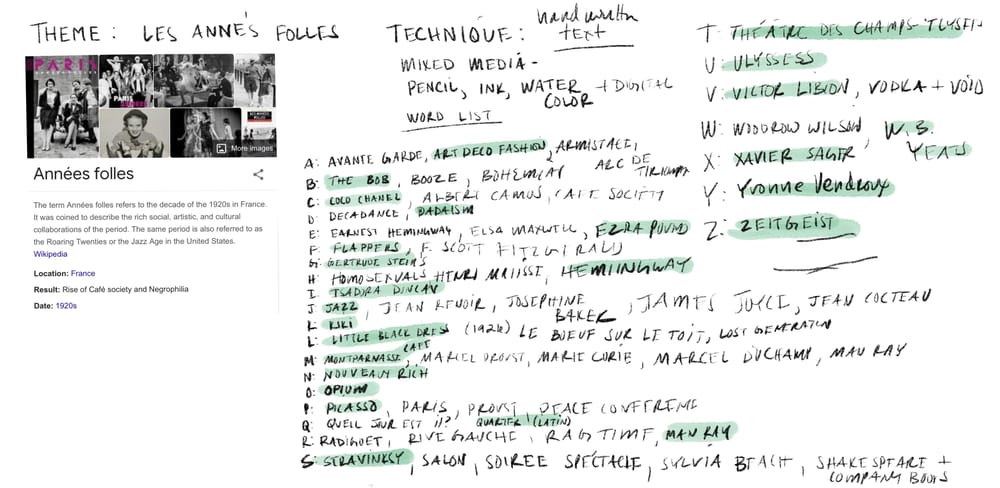 THEME: LES ANNÉS FOLLES
PARIS
PARIS
More images
Années folles
The term Années folles refers to the decade of the 1920s in France.
It was coined to describe the rich social, artistic, and cultural
collaborations of the period. The same period is also referred to as
the Roaring Twenties or the Jazz Age in the United States.
Wikipedia
Location: France
Result: Rise of Café society and Negrophilia
Date: 1920s
TECHNIQUE: hand written text
MIXED MEDIA -
PENCIL, INK, WATER COLOR + DIGITAL
WORD LIST
A: AVANTE GARDE, ART DECO FASHION, ARMISTACE, ARC DE TIRIUMPH
B: THE BOB, BOOZE, BOHEMIAN
C: COCO CHANEL, ALBERT CAMUS, CAFE SOCIETY
D: DECADANCE, DADAISM
E: EARNEST HEMINGWAY, ELSA MAXWELL, EZRA POUND
F: FLAPPERS, F. SCOTT FITZGIRALD
G: GERTRUDE STEINS
H: HOMOSEXUALS HENRI MATISSE, HEMIINGWAY
I: ISADORA DUNCAN
J: JAZZ, JEAN RENOIR, JOSEPHINE BAKER, JAMES JOYCE, JEAN COCTEAU
K: KIKI
L: LITTLE BLACK DRESS (1926) LE BOEUF SUR LE TOIT, LOST GENERATION
M: MONTPARNASSE CAFE, MARCEL PROUST, MARIE CURIE, MARCEL DUCHAMP, MAN RAY
N: NOUVEAUX RICH
O: OPIUM
P: PICASSO, PARIS, PROUST PEACE CONFERENCE
Q: QUEIL JOUR EST IL? QUARTIER (LATIN)
R: RADIGUET, RIVE GAUCHE, RAGTIME, MAN RAY
S: STRAVINKSY, SALON, SOIREE SPECTACLE, SYLVIA BEACH, SHAKESPEARE + COMPANY BOOKS
T: THÉATRE DES CHAMPS-ELYSEES
U: ULYSSESS
V: VICTOR LIBION, VODKA + VOID
W: WOODROW WILSON, W.B. YEATS
X: XAVIER SAGER
Y: Yvonne Vendroux
Z: ZEITGEIST